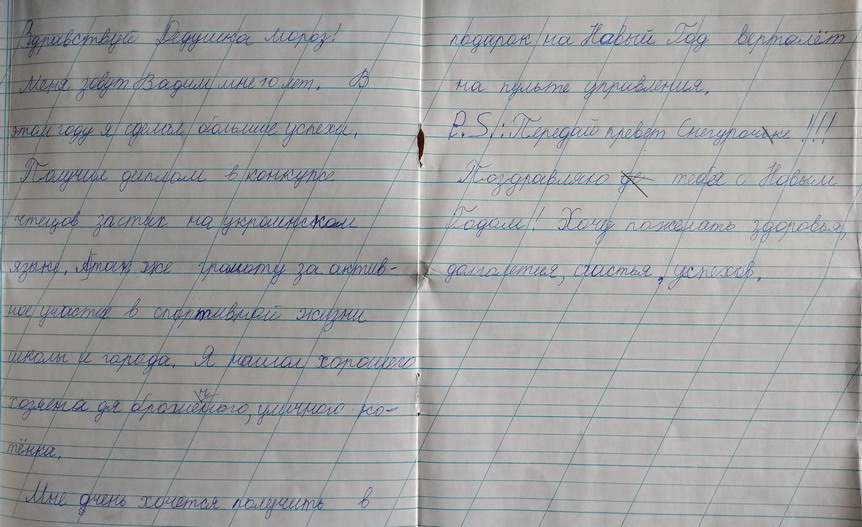 Здравствуй Дедушка мороз!
Меня зовут Вадим мне 10 лет. В
этом году я сделал большие успехи.
Получил диплом в конкурсе
чтецов застих на украинском
языке. Атак же грамоту за актив-
ное участие в спортивной жизни
школы и города. Я нашол хорошего
хозяена дя брошенного, уличного ко-
тёнка.
Мне очень хочется получить в
подарок на Новый Год вертолёт
на пульте управления.
P.S.: Передай превет Снегурочке!!!
Поздравляю тебя с Новым
Годом! Хочу пожелать здоровья,
долголетия, счастья, успехов.